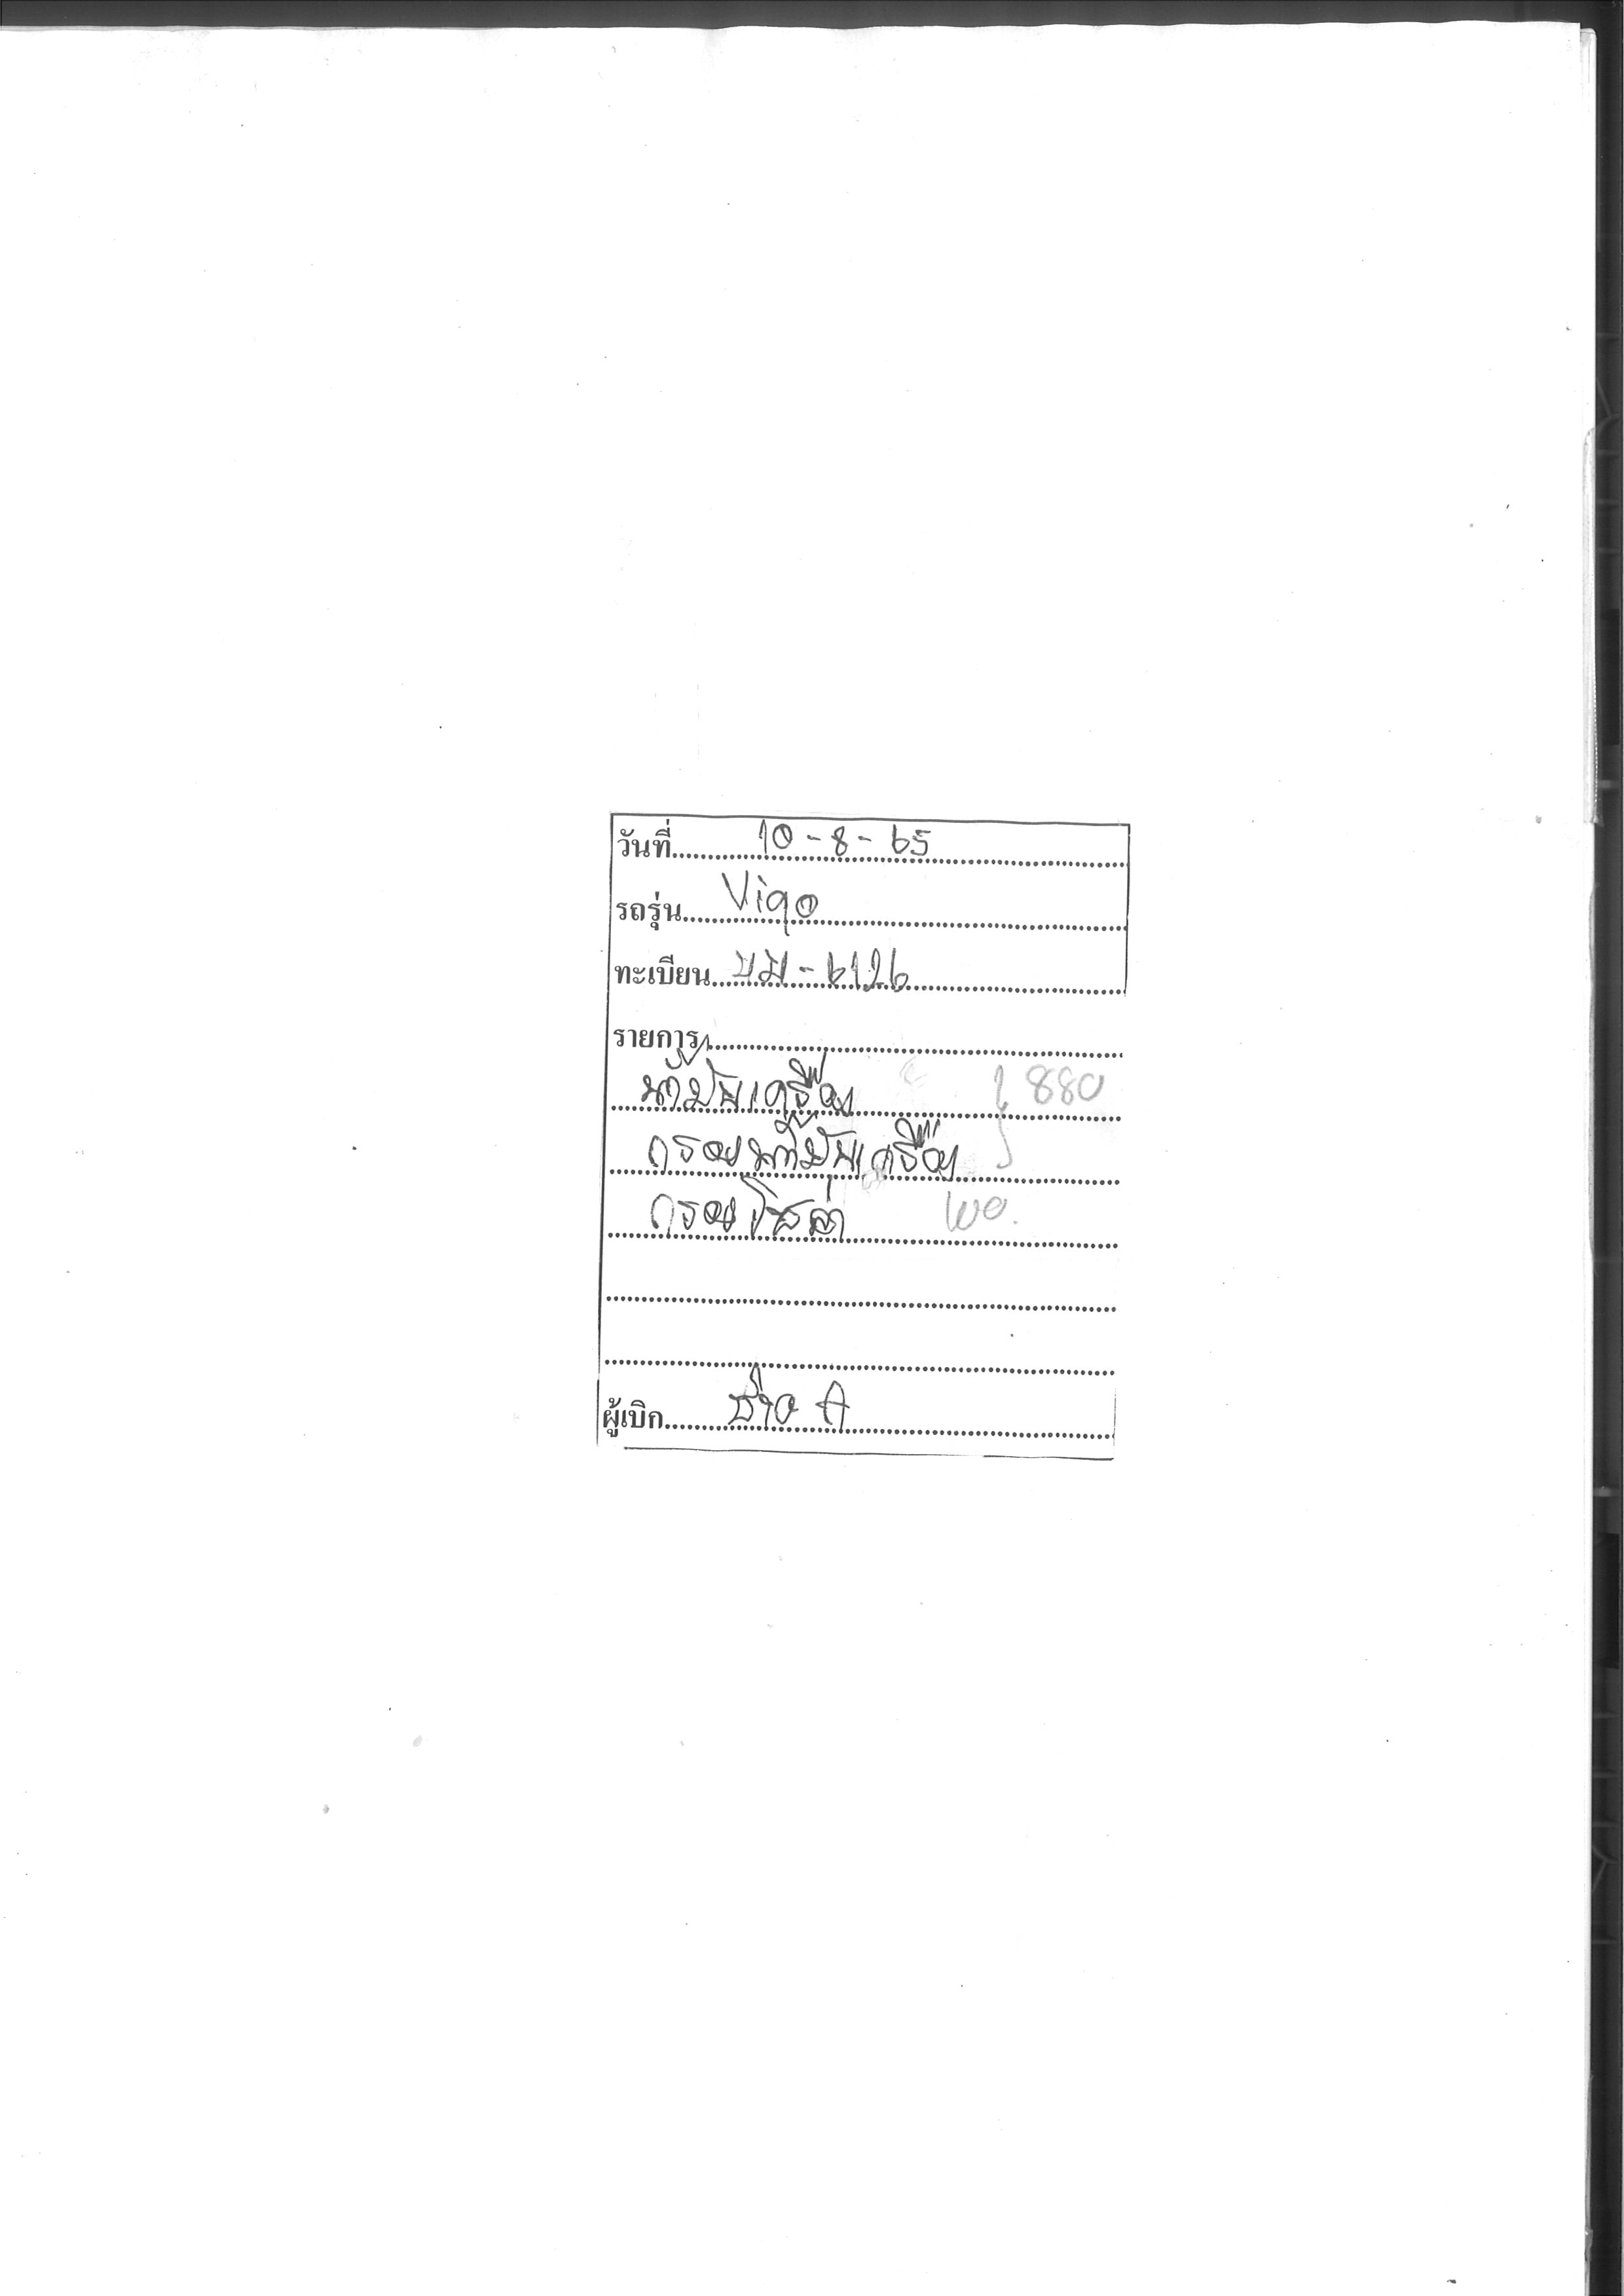 วันที่ 10-8-65
รถรุ่น Vigo
ทะเบียน 6126
รายการ
น้ำมันเครื่อง 880
กรองน้ำมันเครื่อง
กรองโซล่า
ผู้เบิก ช่าง A